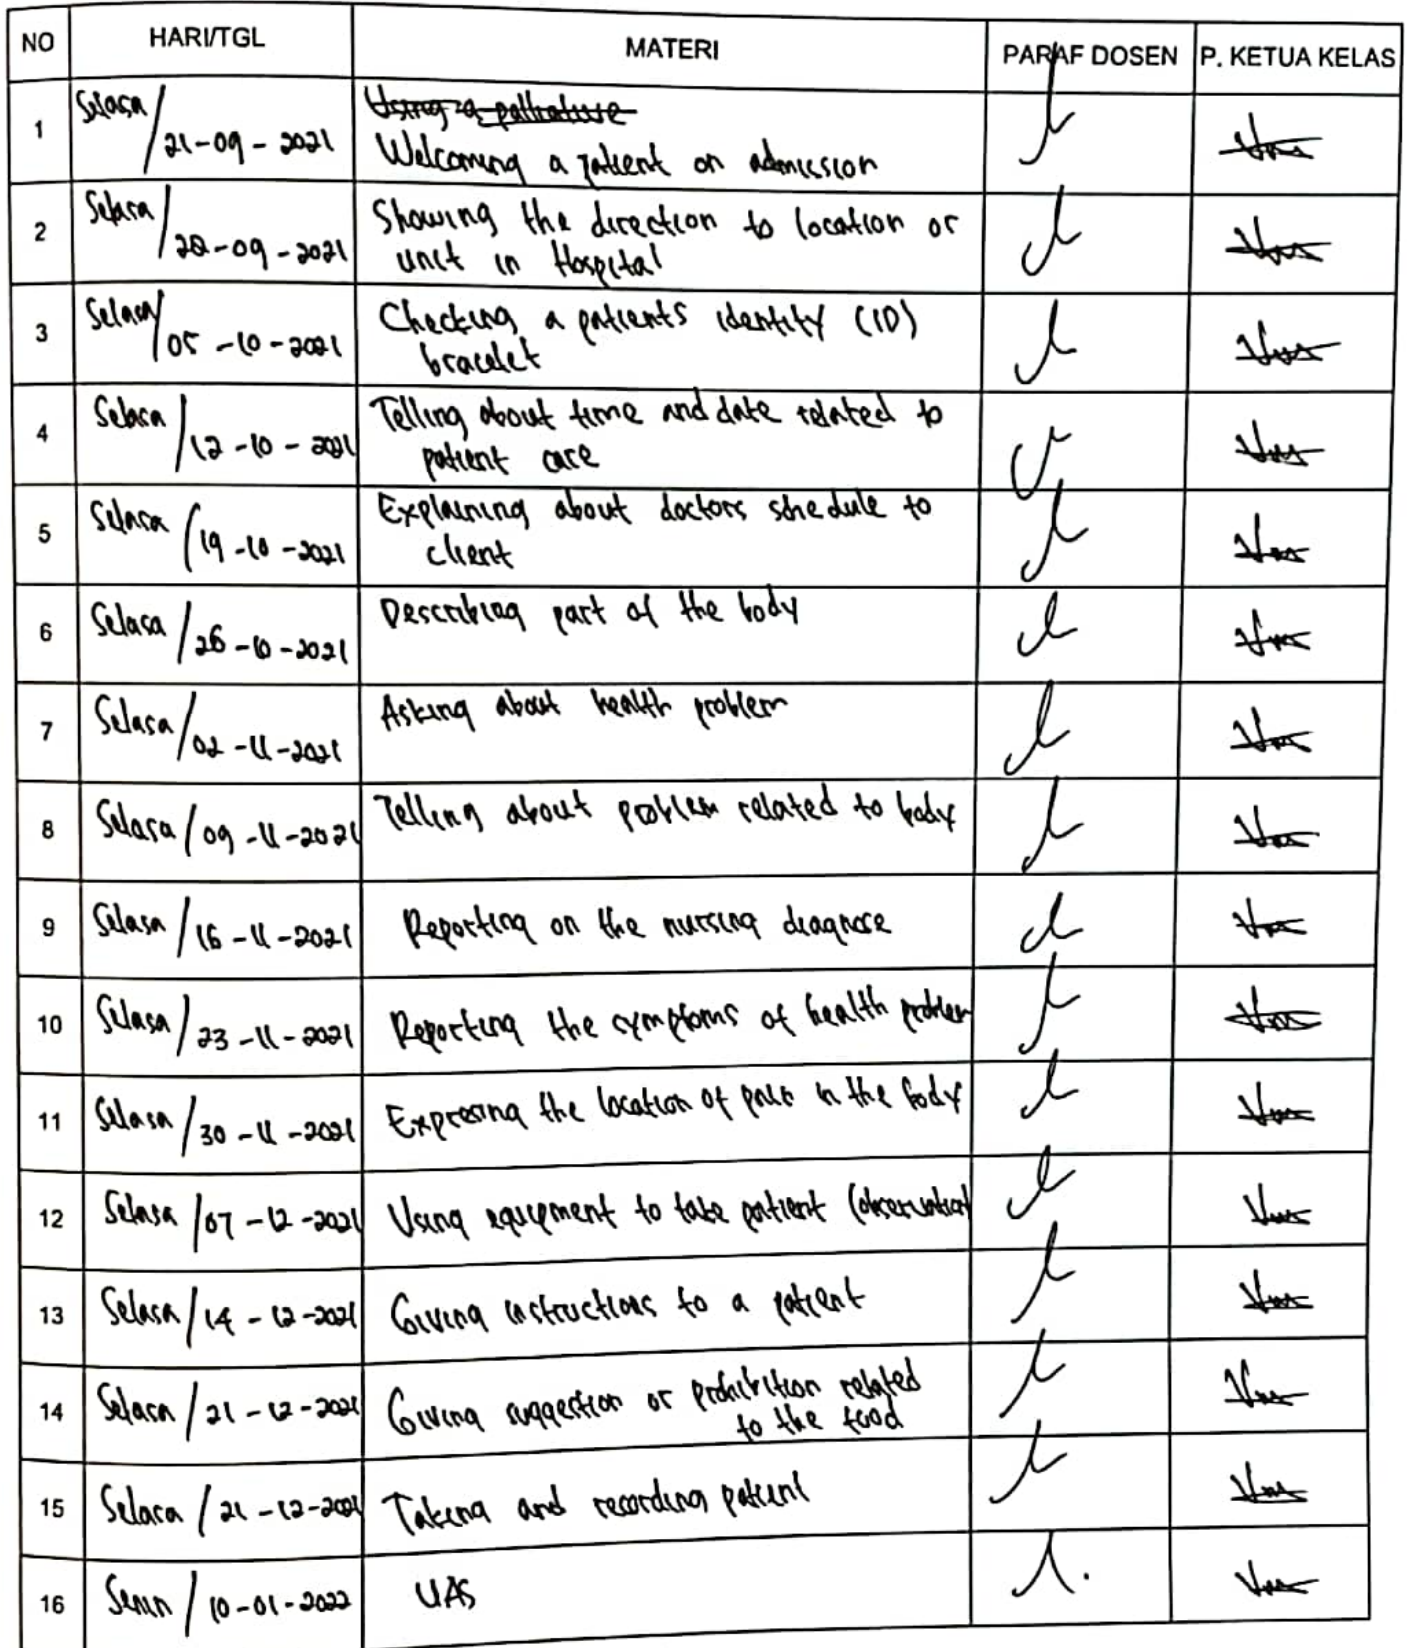 NO HARI/TGL MATERI PARAF DOSEN P. KETUA KELAS
1 Selasa / 21-09-2021
Welcoming a patient on admission
2 Selasa / 28-09-2021 Showing the direction to location or
unit in Hospital
3 Selasa / 05-10-2021 Checking a patients identity (ID)
bracelet
4 Selasa / 12-10-2021 Telling about time and date related to
patient care
5 Selasa / 19-10-2021 Explaining about doctors schedule to
client
6 Selasa / 26-10-2021 Describing part of the body
7 Selasa / 02-11-2021 Asking about health problem
8 Selasa / 09-11-2021 Telling about problem related to body
9 Selasa / 16-11-2021 Reporting on the nursing diagnose
10 Selasa / 23-11-2021 Reporting the symptoms of health problem
11 Selasa / 30-11-2021 Expresing the location of pain in the body
12 Selasa / 07-12-2021 Using equipment to take patient (observation
13 Selasa / 14-12-2021 Giving instructions to a patient
14 Selasa / 21-12-2021 Giving suggestion or prohibition related
to the food
15 Selasa / 21-12-2021 Taking and recording patient
16 Senin / 10-01-2022 UAS